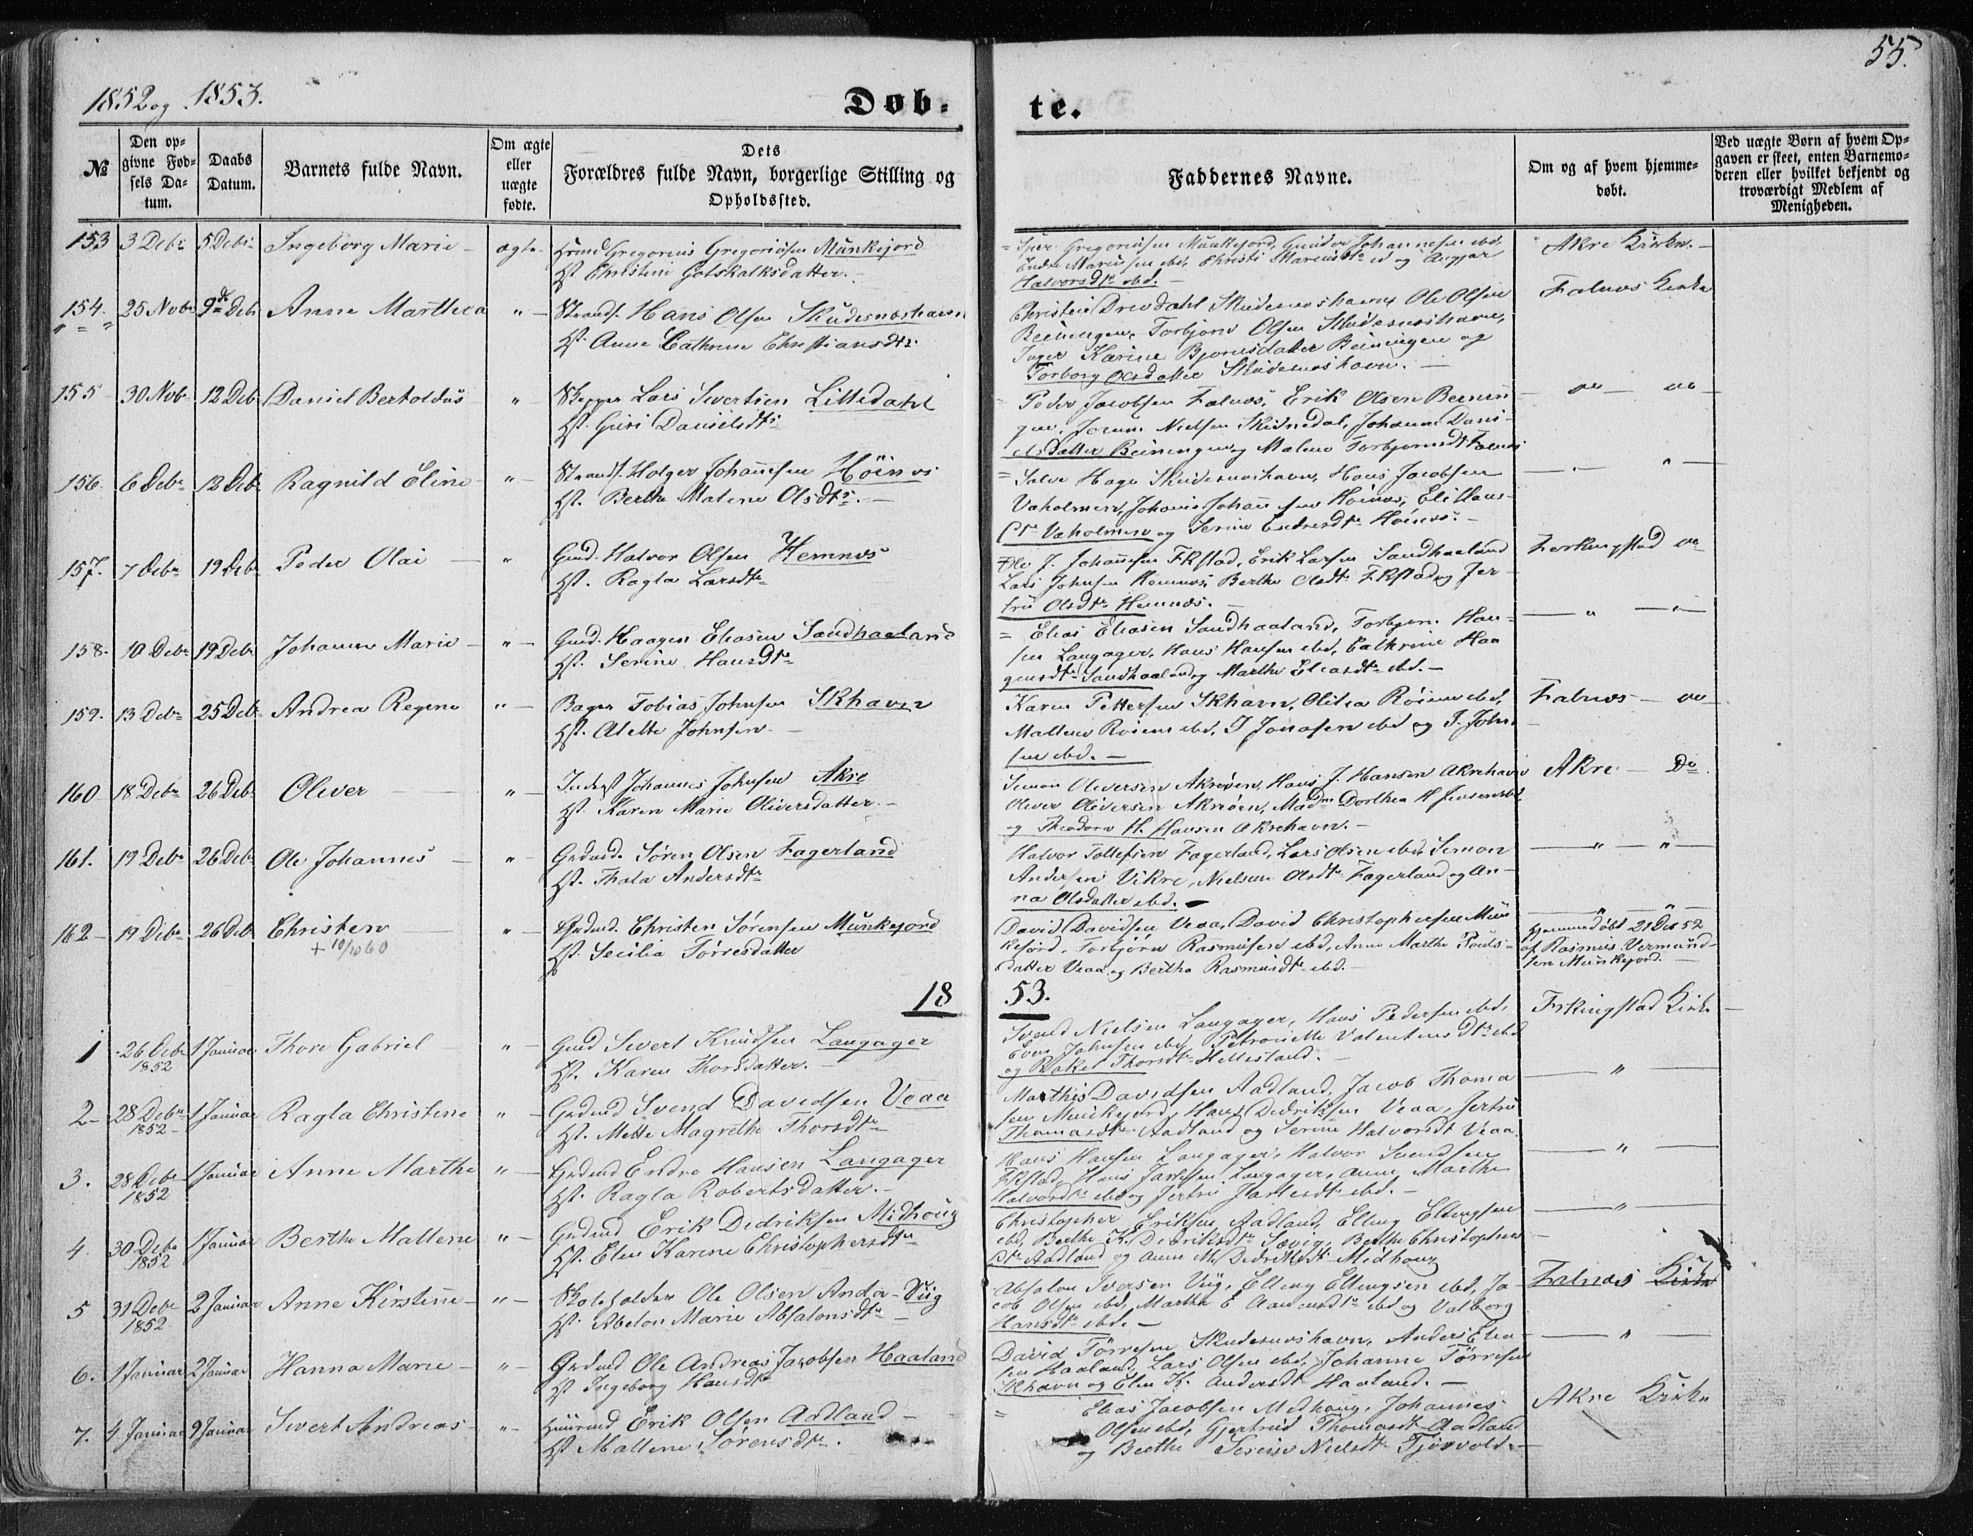 55.
1852 og 1853.
Døb-
te.
№
Den opgivne Fødsels Datum.
Daabs Datum.
Barnets fulde Navn.
Om ægte eller uægte fødte.
Dets Forældres fulde Navn, borgerlige Stilling og Opholdssted.
Faddernes Navne.
Om og af hvem hjemmedøbt.
Ved uægte Børn af hvem Opgaven er skeet, enten Barnemoderen eller hvilket bekjendt og troværdigt Medlem af Menigheden.
153 3 Debr 5 Debr Ingeborg Marie ægte Gregorius Gregoriusen Munkejord
Hst. Christine Gotskalksdatter.
Gregoriusen Munkejord, Gunder Johannesen ibd,
Endre Mariusen ibd, Christi og
Halvorsdtr ibd.
Akre Kirke.
154. 25 Novbr 9de Deb Anne Marthea " Strands. Hans Olsen Skudesnæshavn
Hst. Anne Cathrine Christiansdtr
Christen Drevdahl Skudesnæshavn, Ole Olsen
Beiningen, Torbjørn Olsen Skudesnæshavn,
Inger Karine Bjørnsdatter Beiningen og
Torborg Olsdatter Skudesnæshavn.
Falnæs Kirke
155 30 Novb 12 Deb Daniel Bertoldus " Skipper Lars Sivertsen Littledahl
Hst. Guri Danielsdtr
Peder Jacobsen Falnæs, Erik Olsen Beinin
gen, Nielsen Johanne Dani-
elsdatter Beiningen og Malene Torbjørnsdt Falnæs
156. 6 Debr 12 Debr Ragnild Eline " Strands. Holger Johannesen Höinæs
Hst. Berthe Malene Olsdtr.
Salve Hage Skudesnæshavn, Hans Jacobsen
Vaholmen, Johannes Johannesen Höinæs, Eli Hans-
dtr Vaholmen og Serine Endresdtr Höinæs.
157. 7 Debr 19 Debr Peder Olai " Gmd. Halvor Olsen Hemnæs
Hst. Ragla Larsdtr
Ole J. Johannesen Fkstad, Erik Larsen Sandhaaland
Lars Johnsen Hemnæs, Berthe Olsdtr Fkstad og Jer-
tru Olsdtr Hemnæs.
Ferkingstad
158. 10 Debr 19 Debr Johanne Marie " Gmd. Haagen Eliasen Sandhaaland
Hst. Serine Hansdtr
Elias Eliasen Sandhaaland, Torbjørn Han-
sen Langager, Hans Hansen ibd, Cathrine Haa
gensdtr Sandhaaland og Marthe Eliasdtr ibd.
159. 13 Debr 25 Debr Andrea Regine " Bager Tobias Johnsen Skhavn
Hst. Alette Johnsen
Karen Pettersen Skhavn, Olitea ibd,
Mallene ibd, J Jonasen ibd og J. John-
sen ibd.
Falnæs
160 18de Debr 26 Debr Oliver " Inderst Johannes Johnsen Akre
Hst. Karen Marie Oliversdatter.
Simon Oliversen Akreøen, Hans J. Hansen Akrehavn
Oliver Oliversen Akreøen, Madm Dorthea H. Jensen ibd,
og Theodora H. Hansen Akrehavn.
Akre Do
161. 19 Debr 26 Debr Ole Johannes " Grdmd. Søren Olsen Fagerland
Hst. Thala Andersdtr
Halvor Tollefsen Fagerland, Lars Olsen ibd, Simon
Andersen Vikre, Nielsine Olsdtr Fagerland og An-
na Olsdatter ibd.
162 19 Debr 26 Deb Christen + 10/10 60 " Grdmd. Christen Sørensen Munkejord
Hst. Cecilia Tørresdatter
David Davidsen Veaa, David Christophersen Mun
kejord, Torbjørn Rasmusen ibd, Anne Marthe Pouls-
datter Veaa og Berthe Rasmusdtr ibd.
Hjemmedøbt 21 Des 52
af Rasmus Vermund-
sen Munkejord.
18 53.
1 26 Debr 1852 1 Januar Thore Gabriel " Gmd Sivert Knudsen Langager
Hst. Karen Thorsdatter.
Svend Nielsen Langager, Hans Pedersen ibd,
Johnsen ibd, Petronelle Valentinsdtr ibd
og Rakel Thorsdtr Hellesland.
Frkingstad Kirke
2 28 Debr 1852 1 Januar Ragla Christine " Grdmd Svend Davidsen Veaa
Hst. Mette Magrethe Thorsdtr
Marthis Davidsen Aadland, Jacob Thoma
sen Munkejord, Hans Didriksen Veaa, Jertru
Thomasdtr Aadland og Serine Halvorsdt Veaa.
3. 28 Debr 1852 1 Januar Anne Marthe " Grdmd Endre Hansen Langager
Hst. Ragla Robertsdatter.
Hans Hansen Langager, Halvor Svendsen
Fkstad, Hans Langager, Anne Marthe
Halvorsdtr ibd og Jertru ibd.
4. 30 Debr 1852 1 Januar Berthe Mallene " Grdmd Erik Didriksen Midhoug
Hst. Elen Karine Christophersdtr
Christopher Eriksen Aadland, Elling Ellingsen
ibd, Berthe K. Didriksdtr Sævig, Berthe Christophers
dtr Aadland og Anne M. Didriksdtr Midhoug
5 31 Debr 1852 2 Januar Anne Kirstine " Skoleholder Ole Olsen Anda Viig
Hst. Abelon Marie Absalonsdtr
Absalon Iversen Viig, Elling Ellingsen ibd, Ja
cob Olsen ibd, Martha E. ibd og Valborg
Hansdtr ibd.
Falnæs Kirke
6. 1 Januar 2 Januar Hanna Marie " Grdmd Ole Andreas Jacobsen Haaland
Hst Ingeborg Hansdtr
David Tørresen Skudesnæshavn, Anders Elia-
sen Haaland, Lars Olsen ibd, Johanne Tørresen
Skhavn og Elen K. Andersdt Haaland.
7. 4 Januar 9 Januar Sivert Andreas " Huusmd Erik Olsen Aadland
Hst. Mallene Sørensdtr.
Elias Jacobsen Midhoug, Johannes
Olsen ibd, Gjertrud Thomasdt Aadland
og Berthe Serine Nielsdtr
Akre Kirke